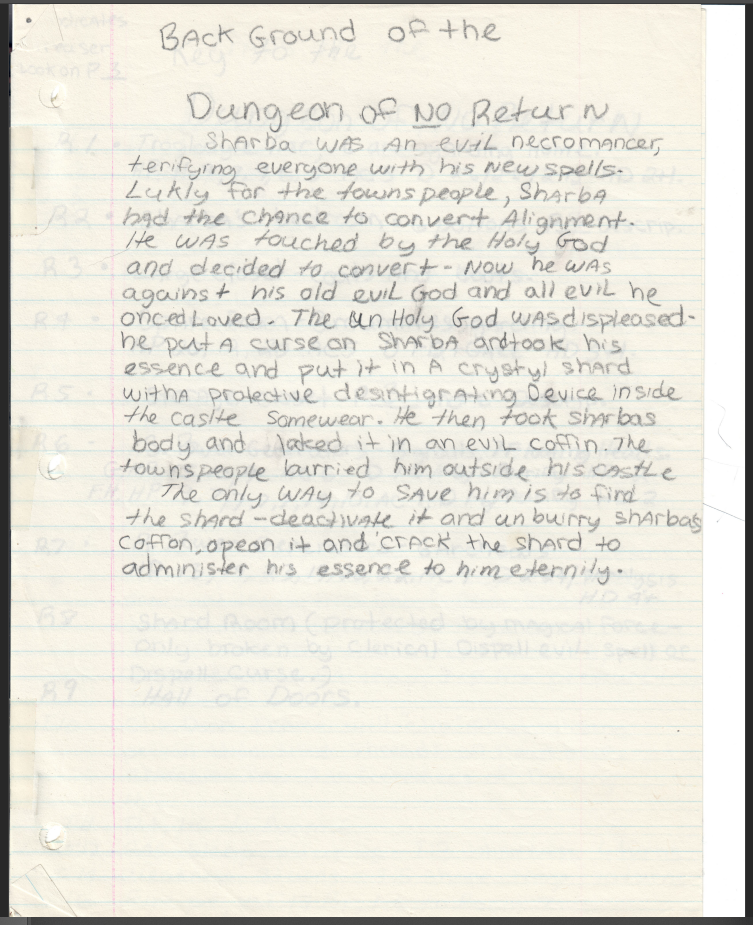 BACK Ground of the
Dungeon of NO Return
ShArba WAS An eviL necromancer,
terifying everyone with his New spells.
Lukly for the towns people, ShArbA
had the chAnce to convert Alignment.
He wAs touched by the Holy God
and decided to convert - Now he wAs
against his old eviL God and all eviL he
onced Loved. The un Holy God wAs displeased-
he put A curse on ShArbA and took his
essence and put it in A crystyl shArd
with A protective desintigrAting Device inside
the caslte somewear. He then took shArbas
body and laked it in an evil coffin. The
townspeople burried him outside his cAstLe
The only wAy to SAve him is to find
the shArd - deactivAte it and unburry shArbas
coffon, opeon it and crAcK the shArd to
administer his essence to him eternily.
Key to the
R1
R2
R3
R4
R5
R6
R7
R8 Shard Room (protected by magical force-
only broken by Clerical Dispell evil spell or
Dispell Curse.)
R9 Hall of Doors.